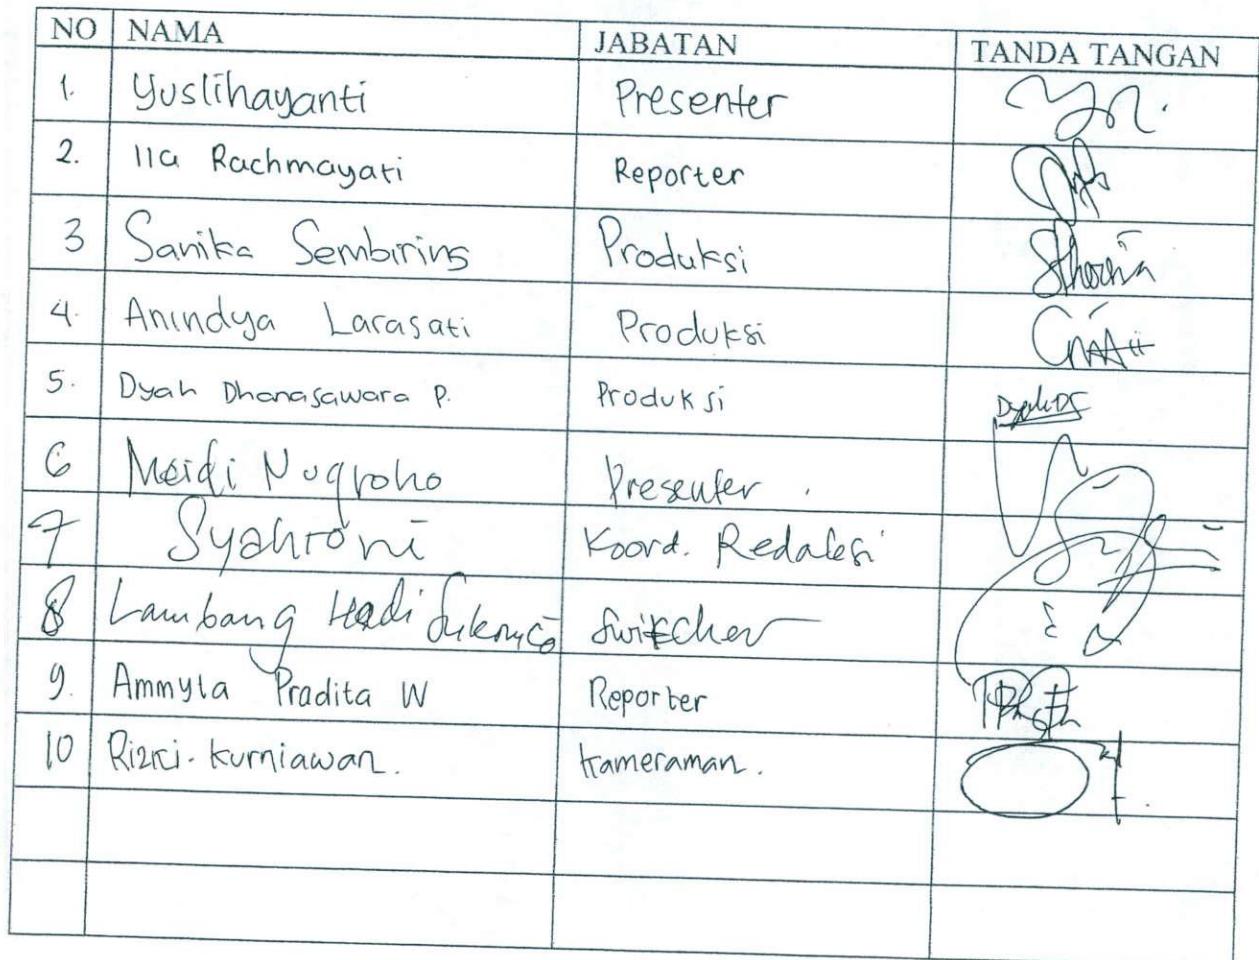 NO NAMA JABATAN TANDA TANGAN
1. Yuslihayanti Presenter
2. Ila Rachmayati Reporter
3 Sanika Sembiring Produksi
4. Anindya Larasati Produksi
5. Dyah Dhanasawara P. Produksi
6 Meidi Nugroho Presenter.
7 Syahroni Koord. Redaksi
8 Lambang Hadi Switcher
9. Ammyta Pradita W Reporter
10 Rizki. Kurniawan. Kameraman.